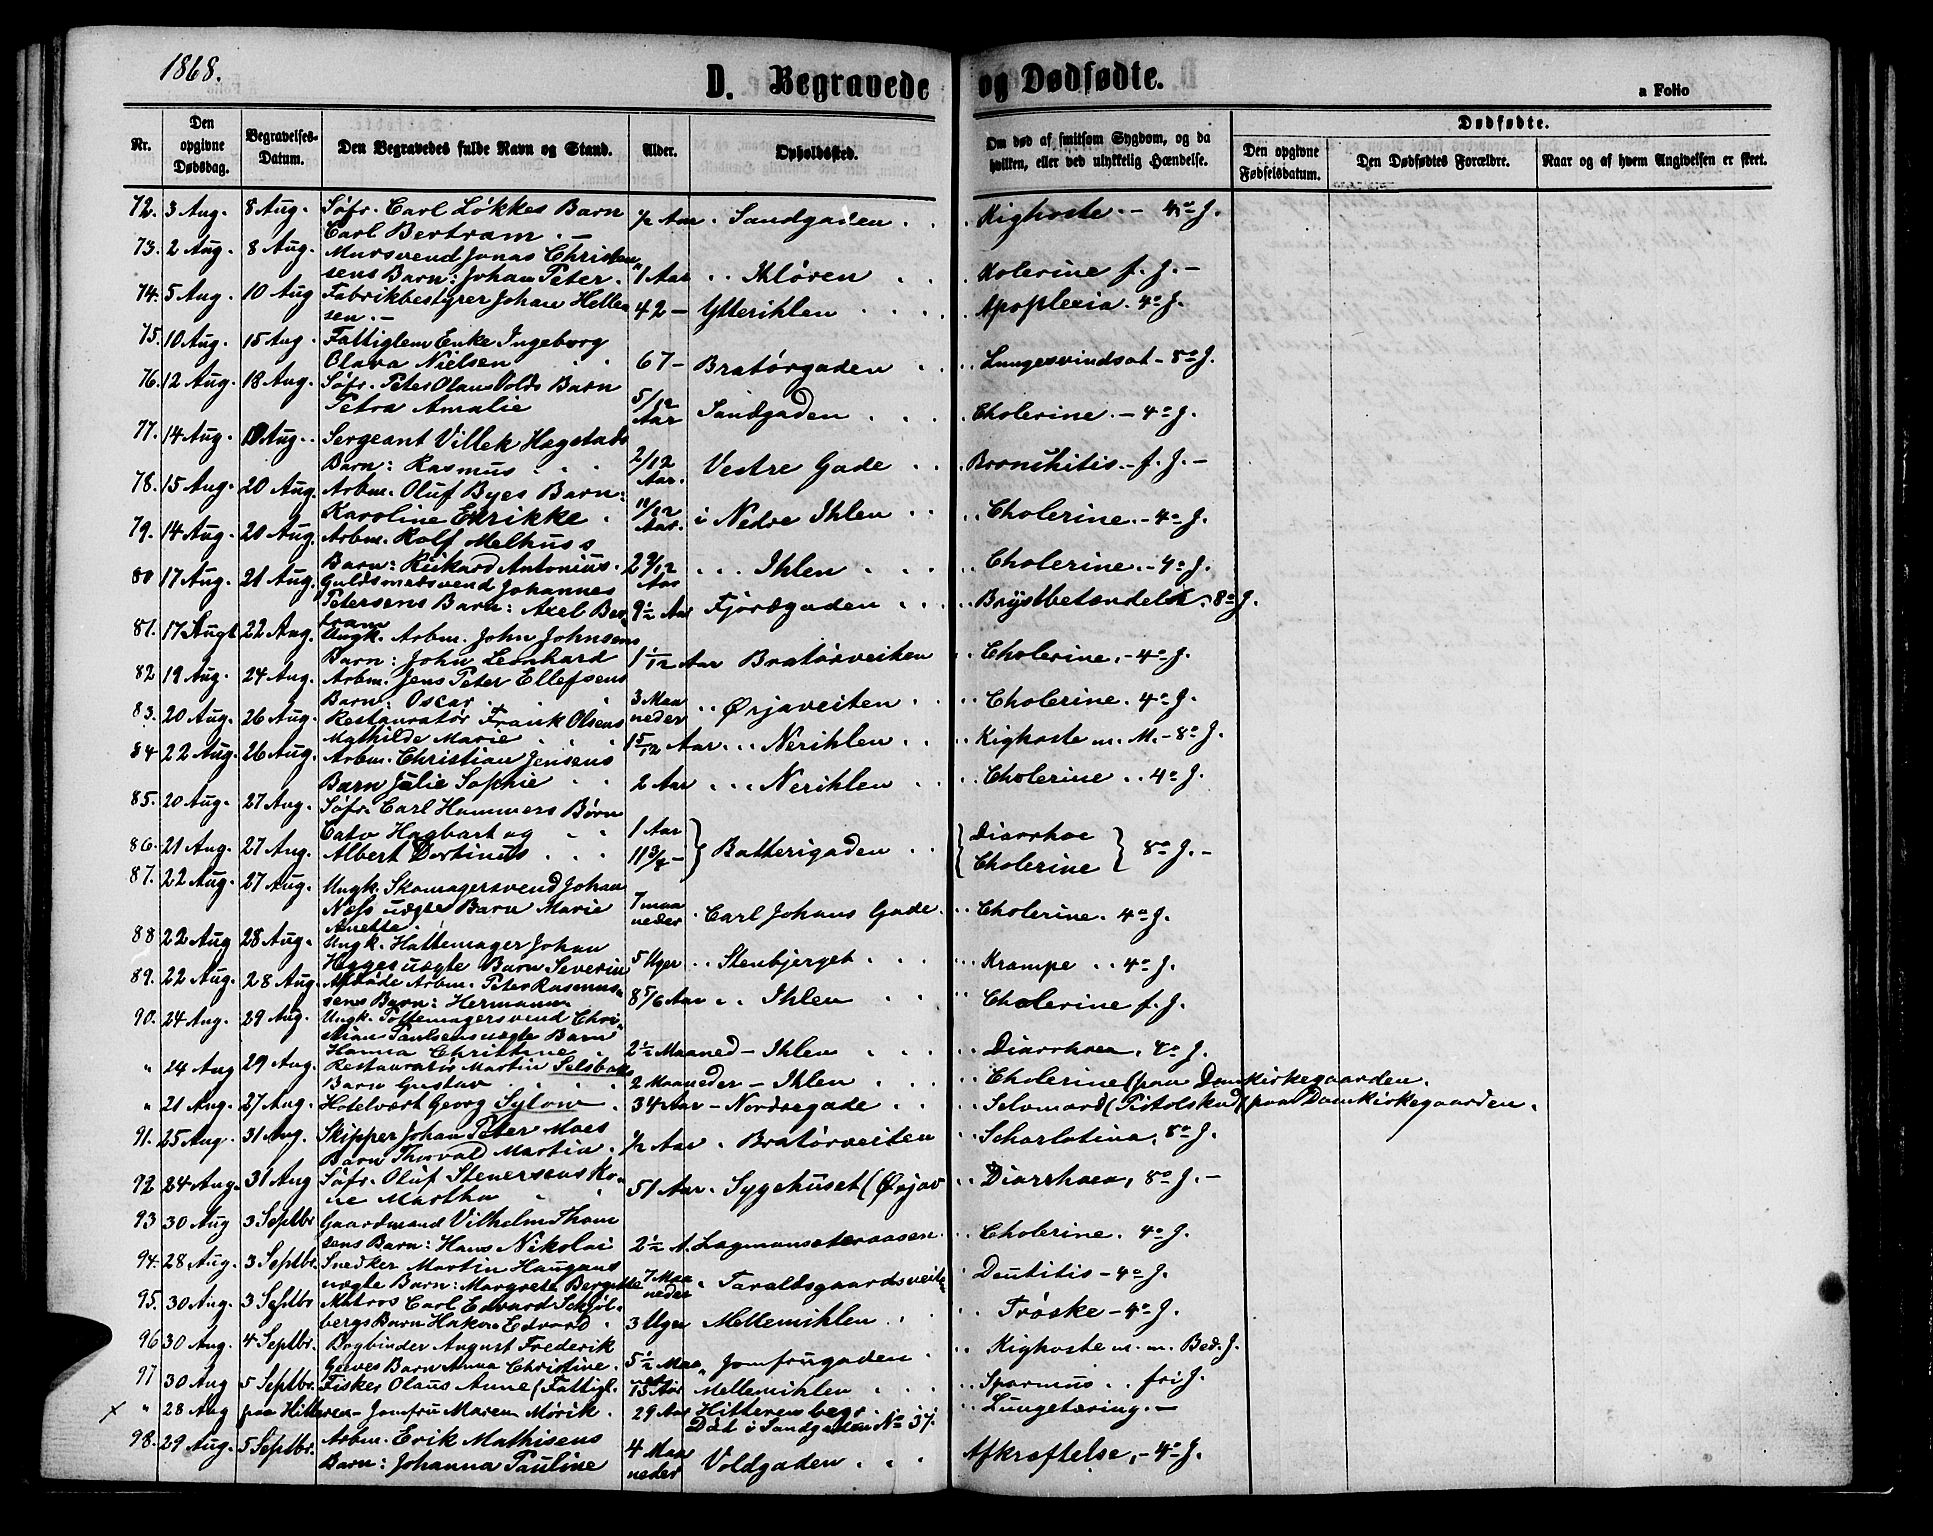 1868.
D. Begravede og Dødfødte.
a Folio
Nr. | Den opgivne Dødsdag. | Begravelses-Datum. | Den Begravedes fulde Navn og Stand. | Alder. | Opholdssted. | Om død af smitsom Sygdom, og da hvilken, eller ved ulykkelig Hændelse. | Dødfødte.
Den opgivne Fødselsdatum. | Den Dødfødtes Forældre. | Naar og af hvem Angivelsen er skeet.
72. 3 Aug. 8 Aug. Söfr. Carl Løkkes Barn
Carl Bertram. — ½ Aar. Sandgaden . . Kighoste. — 4º J.
73. 2 Aug. 8 Aug. Mursvend Jonas Christen
sens Barn: Johan Peter. 1 Aar . . Ihlören . . Kolerine f. J. —
74. 5 Aug. 10 Aug Fabrikbestyrer Johan Helle
sen. — 42 — Ytterihlen . . . . Apoplexia. 4º J.
75. 10 Aug. 15 Aug. Fattiglem Enke Ingeborg
Olava Nielsen . . 67 — Bratörgaden . . Lungesvindsot — 8º J.
76. 12 Aug. 18 Aug. Söfr. Peter Olaus Volds Barn
Petra Amalie 5/12 Aar Sandgaden . . . Cholerine. — 4º J.
77. 14 Aug. Aug. . Sergeant Villek Hegstads
Barn: Rasmus . . . 2/12 Aar. Vestre Gade . . Bronchitis. — f. J. —
78. 15 Aug. 20 Aug. Arbm. Oluf Byes Barn:
Karoline Enrikke . 11/12 Aar. i Nedre Ihlen . . Cholerine. — 4º J.
79. 14 Aug. 20 Aug. Arbm. Rolf Melhus s
Barn: Rickard Antonius. 2 9/12 Aar . . . Ihlen . . . Cholerine. — 4º J.
80 17 Aug. 21 Aug. Guldsmedsvend Johannes
Petersens Barn: Axel Ber
tram 9½ Aar Fjordgaden . . . Brystbetændelse. 8º J.
81. 17 Augt 22 Aug. Ungk. Arbm. John Johnsens
Barn: John Leonhard 1 1/12 Aar Bratörveiten . . Cholerine. — 4º J.
82 19 Aug. 24 Aug. Arbm. Jens Peter Ellefsens
Barn: Oscar . . 3 Maaneder . . Ørjaveiten . . . Cholerine. 4º J.
83. 20 Aug. 26 Aug. Restauratør Frank Olsens
Mathilde Marie . . 1 5/12 Aar . . Nerihlen . . . Kighoste m. M. — 8º J.
84 22 Aug. 26 Aug. Arbm. Christian Jensens
Barn Julie Sophie . . 2 Aar . . . Nerihlen . . Cholerine . . 4º J.
85. 20 Aug. 27 Aug. Söfr. Carl Hammers Börn
Cato Hagbart og . . 1 Aar Batterigaden . . Diarrhoe
86. 21 Aug. 27 Aug. Albert Dortinus . . . 11 3/4 — Cholerine 8º J. —
87. 22 Aug. 27 Aug. Ungk. Skomagersvend Johan
Næss uægte Barn Marie
Anette . 7 maaneder . Carl Johans Gade . . Cholerine. 4º J.
88 22 Aug 28 Aug. Ungk. Hattemager Johan
Hegges uægte Barn Severin 5 Uger . . Stenbjerget . . . Krampe . . 4º J.
89. 22 Aug. 28 Aug. Afdöde Arbm. Peter Rasmus
sens Barn: Hermann 8 5/6 Aar . . Ihlen . . . Cholerine f. J.
90. 24 Aug. 29 Aug. Ungk. Pottemagersvend Chri
stian Paulsens uægte Barn
Hanna Christine . 2½ Maaned — Ihlen . . . Diarrhoea. 4º J.
" 24 Aug 29 Aug. Restauratör Martin Selsbaks
Barn Gustav . . . 2 Maaneder — Ihlen . . . Cholerine (paa Domkirkegaarden.
" 21 Aug. 27 Aug. Hotelvært Georg Sylow . 34 Aar — Nordregade . . Selvmord (Pistolskud) (paa Domkirkegaarden.
91. 25 Aug. 31 Aug. Skipper Johan Peter Moes
Barn Thorvald Martin . ½ Aar . Bratörveiten . . Scharlatina. 8º J.
92 24 Aug. 31 Aug Söfr. Oluf Stenersens Ko
ne Martha . . 51 Aar . Sygehuset (Ørjav . . Diarrhoea, 8º J. —
93 30 Aug 3 Septbr Gaardmand Vilhelm Thom
sens Barn: Hans Nikolai 2½ A. Lagmanseteraasen . . Cholerine. 4º J.
94. 28 Aug. 3 Septbr. Snedker Martin Haugans
uægte Barn: Margrete Bergitta 7 Maaneder . Taraldsgaardsveiten . Dentitis — 4º J.
95. 30 Aug. 3 Septbr Matros Carl Edvard Schjöl
bergs Barn Hakon Edvard . 3 Uger Mellemihlen . . . . Tröske — 4º J.
96 30 Aug. 4 Septbr. Bogbinder August Frederik
Geves Barn Anna Christine. 5½ Maa Jomfrugaden . Kighoste m. m. Bed. J.
97 30 Aug 5 Septbr. Fisker Olaus Anne (Fattigl. 73 Aar Mellemihlen . . . . Sparmus . . fri J.
x " 28 Aug paa Hitteren — Jomfru Maren Mörik . 29 Aar Hitteren begr. . Lungetæring. —
Död i Sandgaden No 37.
98. 29 Aug. 5 Septbr. Arbm. Erik Mathisens
Barn: Johanna Pauline 4 Maaneder Voldgaden . . . Afkræftelse. — 4º J.